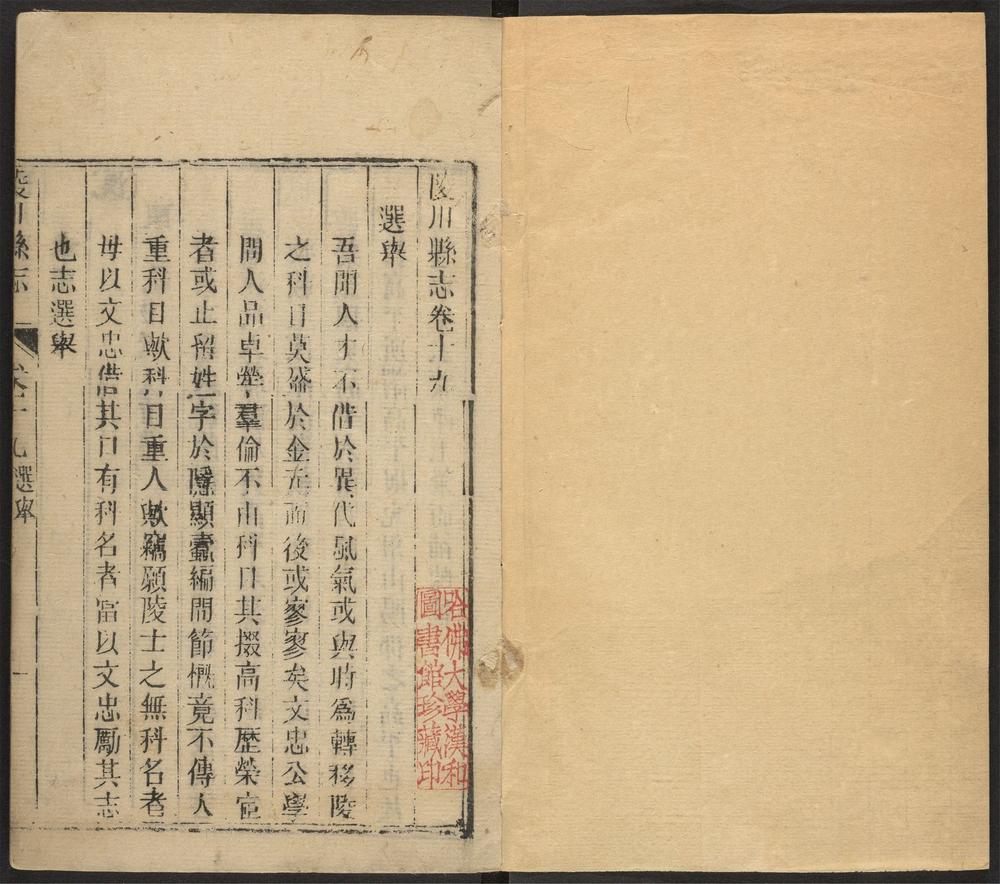 陵川縣志卷十九
選舉
吾聞人才不借於異代風氣或與時爲轉移陵
之科目莫盛於金元而後或寥寥矣文忠公學
問人品卓犖羣倫不由科目其掇高科歷榮宦
者或止留姓字於隱顯蠹編間節槪竟不傳人
重科目歟科目重人歟竊願陵士之無科名者
毋以文忠借其口有科名者當以文忠勵其志
也志選舉
陵川縣志 卷十九選舉 一
哈佛大學漢和
圖書館珍藏印